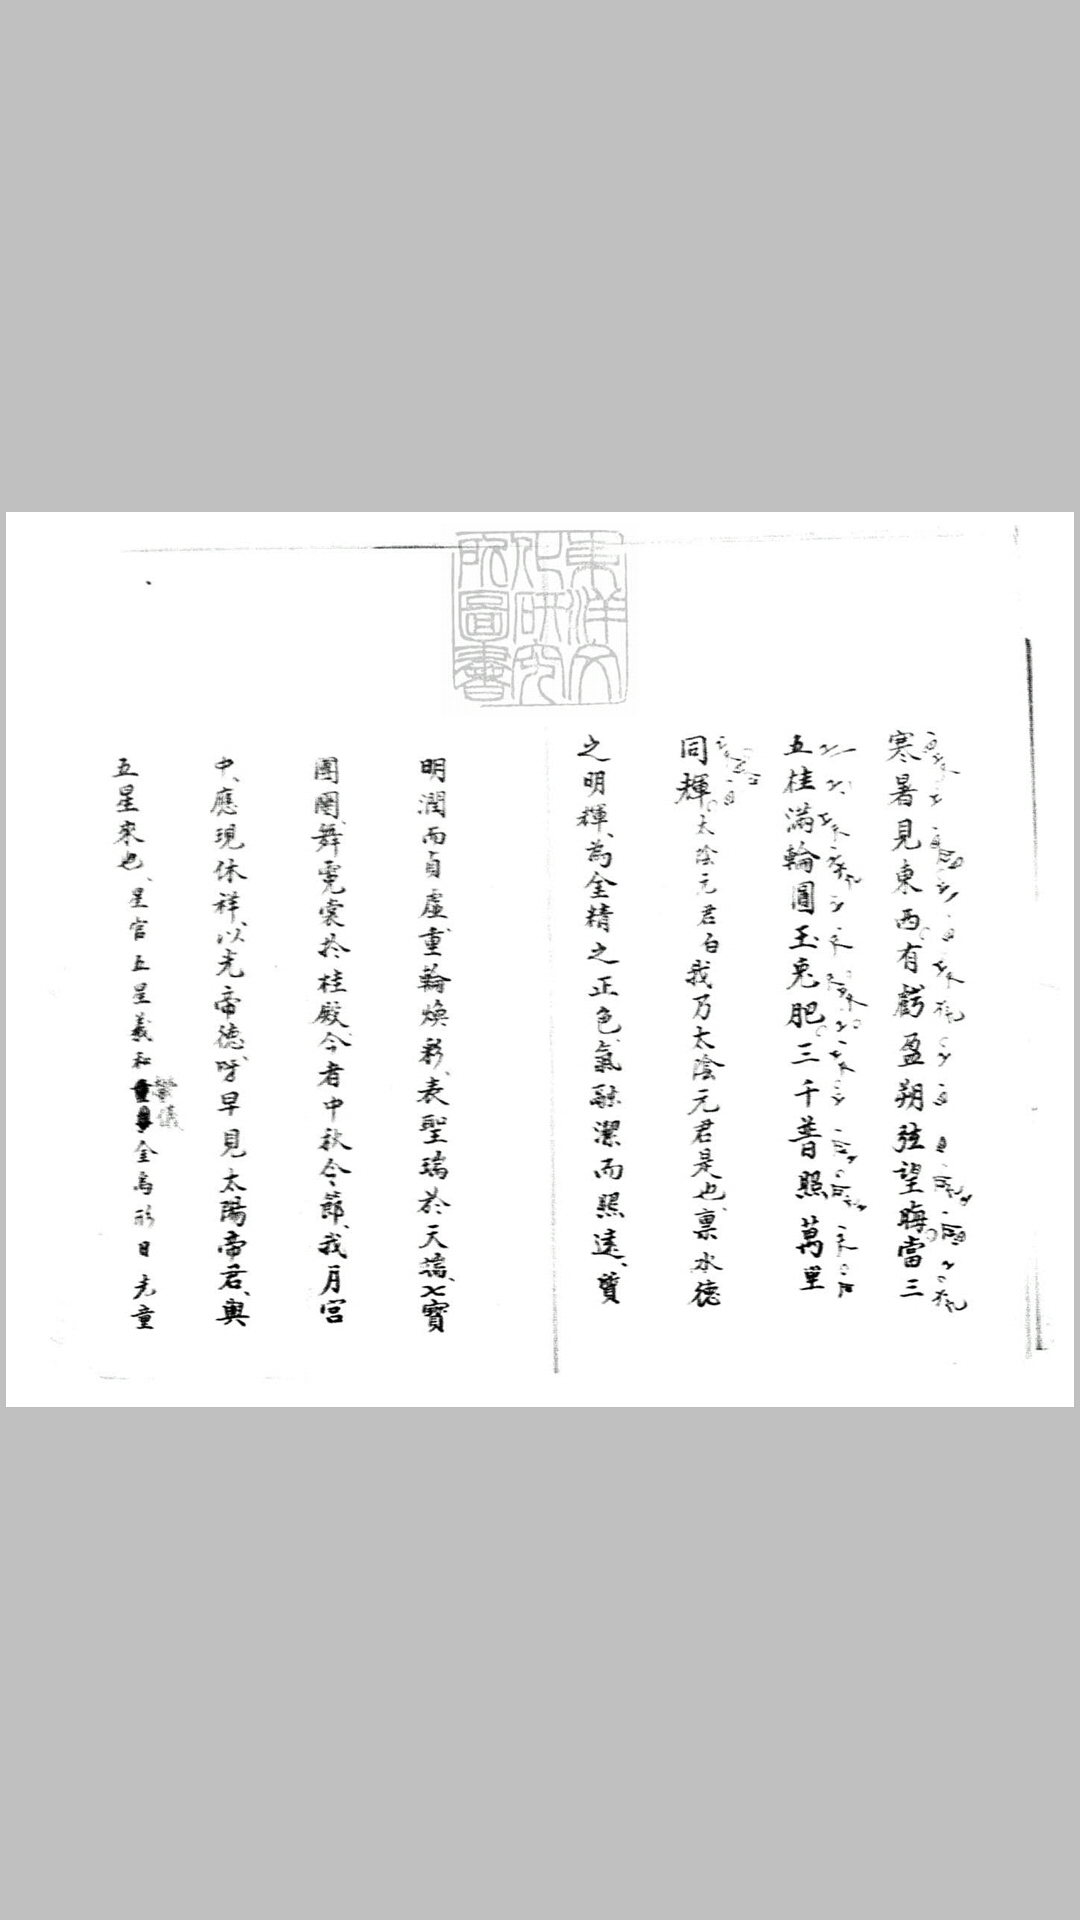 東洋文
化研究
所圖書
寒暑見東西。有虧盈朔弦望晦。當三
五桂滿輪圓玉兎肥。三千普照萬里
同輝。太陰元君白我乃太陰元君是也、禀水德
之明輝、為金精之正色、氣融潔而照遠、質
明潤而貞虛、重輪煥彩、表聖瑞於天端、七寶
團圞、舞霓裳於桂殿、今者中秋令節、我月宮
中、應現休祥、以光帝德、呀早見太陽帝君、與
五星來也、星官五星羲和金烏形日光童
儀